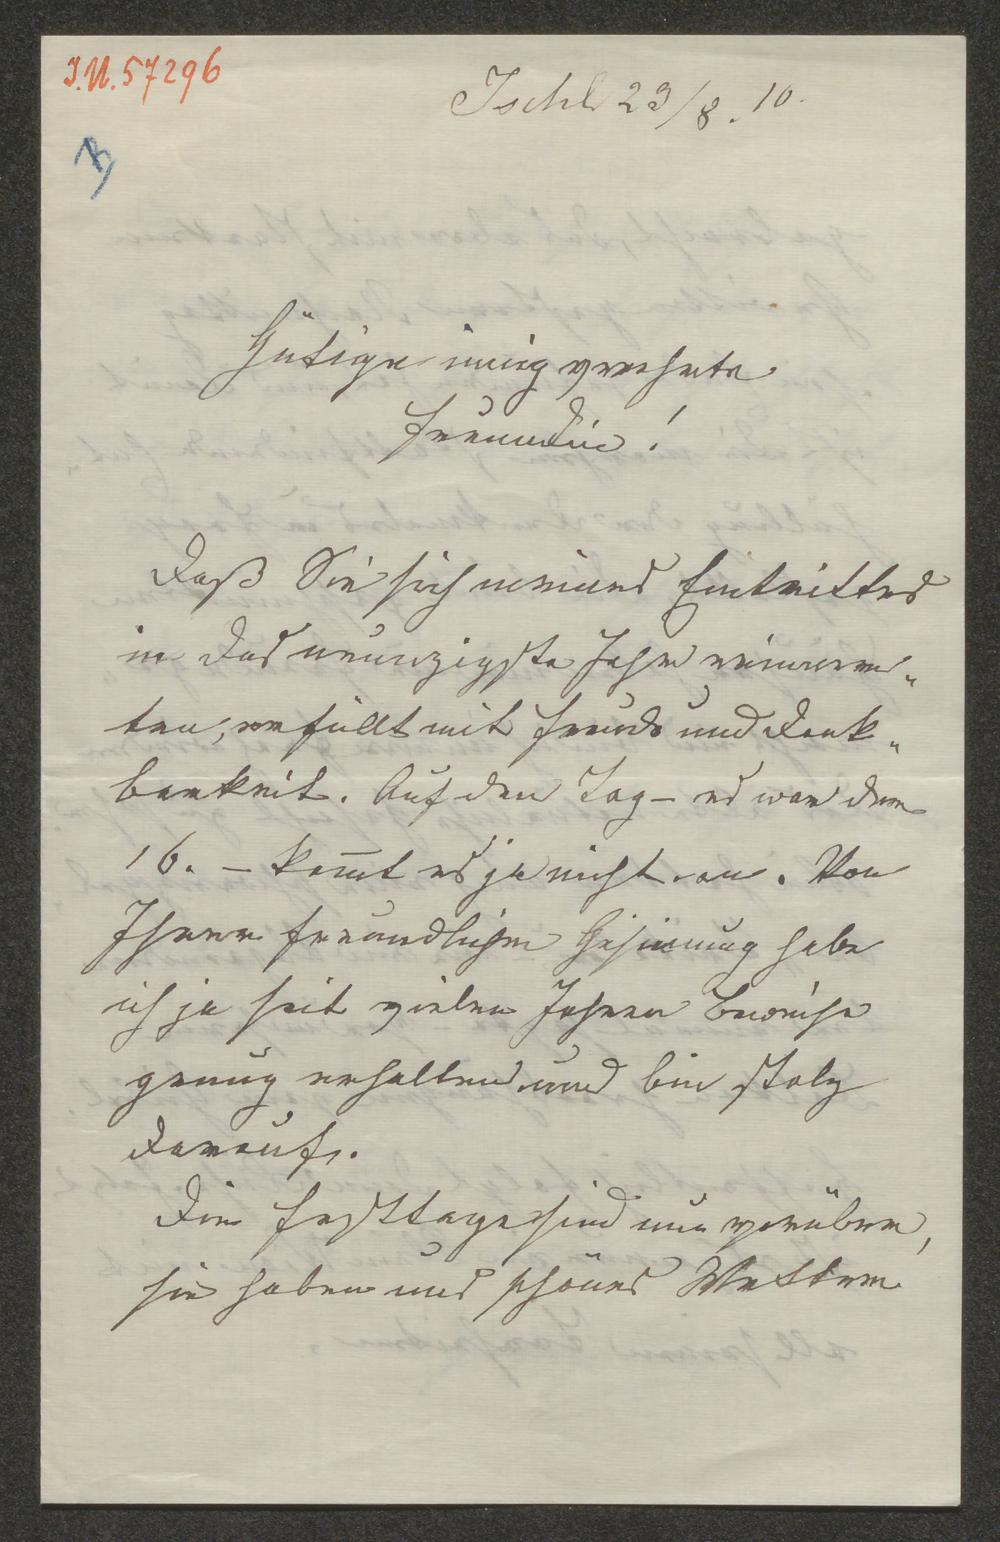 I.N. 57296
Ischl 23/8. 10.
Gütige innig verehrte
Freundin!
Daß Sie sich meines Eintrittes
in das neunzigste Jahr erinner„
ten, erfüllt mit Freude und Dank„
barkeit. Auf den Tag – es war der
16. – kom̅t es ja nicht an. Von
Ihrer freundlichen Gesinnung habe
ich ja seit vielen Jahren Beweise
genug erhalten und bin stolz
darauf.
Die Festtage sind nun vorüber,
sie haben uns schönes Wetter